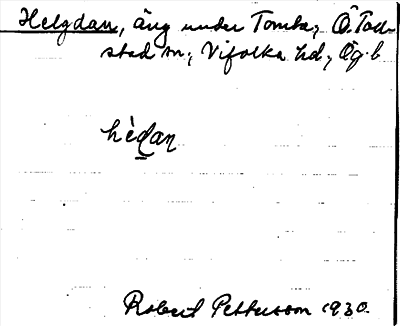 Helgdan, äng under Tomta, Ö. Toll-
stad sn, Vifolka hd, Ög. l
hèdan
Robert Pettersson 1930.